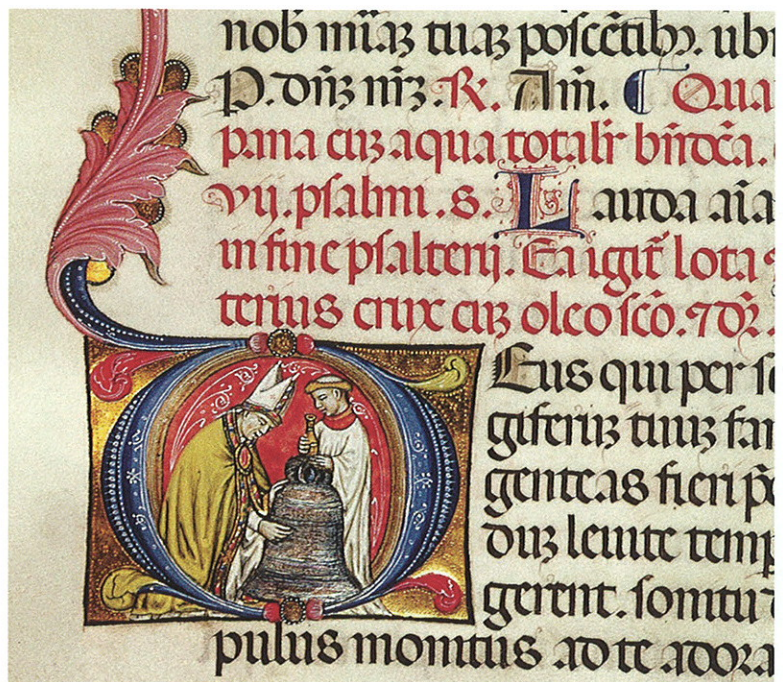 nob̄ mīaꝫ tuaꝫ poscētibꝫ. ubi
P. dn̄ꝫ nr̄ꝫ. R. Am̄. Qua
pana cuꝫ aqua totalr̄ bn̄dc̄a.
vij. psalmi. s. Lauda aīa
in fine psalterij. Ea igit̄ lota
terius crux cuꝫ oleo sc̄o. ⁊ dr̄.
Eus qui per
giferuꝫ tuuꝫ
genteas fieri
duꝫ leuite temp
gerent. sonitu
pulus monitus ad te adora